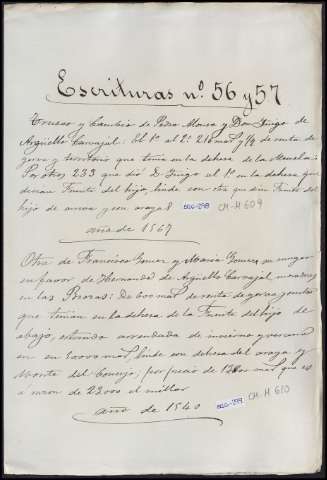 Escrituras nº. 56 y 57
Trueco y Cambio de Pedro Alonso y Don Iñigo de
Argüello Carvajal: El 1º al 2º 218 mrs y 1/2 de renta de
yerva y territorio que tenia en la dehesa de la
Por otros 233 que dió D. Iñigo al 1º en la dehesa que
dicen Fuente del hijo, linde con otra que dicen Fuente del
hijo de arriva y con araya
602-298
CM-H 609
año de 1567
Otra de Francisco Gomez y Maria Gomez su muger
en favor de Hernando de Argüello Carvajal moradores
en las Brozas: De 600 mrs de renta de yerva y
que tenian en la dehesa de la Fuente del hijo de
abajo, estando arrendada de invierno y verano
en mrs, linde con dehesa del araya y
Monte del Concejo; por precio de mrs que es
á razon de 22000 el millar
602-299
CM-H 610
año de 1540